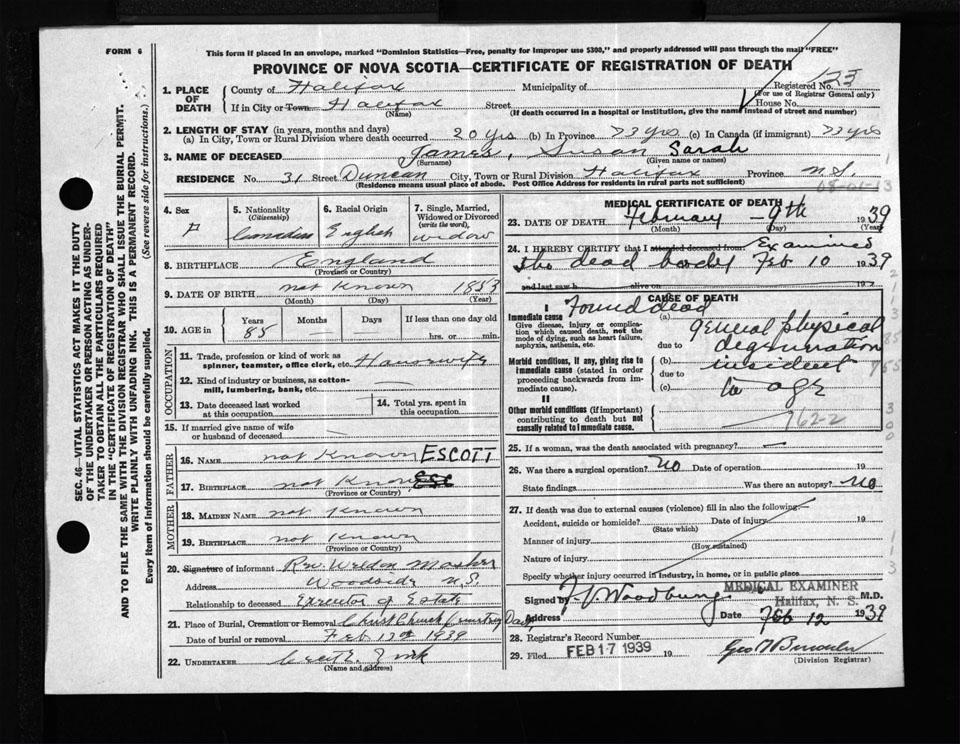 FORM 6
This form if placed in an envelope, marked "Dominion Statistics—Free, penalty for improper use $300," and properly addressed will pass through the mail "FREE"
PROVINCE OF NOVA SCOTIA—CERTIFICATE OF REGISTRATION OF DEATH
SEC. 46—VITAL STATISTICS ACT MAKES IT THE DUTY
OF THE UNDERTAKER OR PERSON ACTING AS UNDER-
TAKER TO OBTAIN ALL THE PARTICULARS REQUIRED
IN THE "CERTIFICATE OF REGISTRATION OF DEATH"
AND TO FILE THE SAME WITH THE DIVISION REGISTRAR WHO SHALL ISSUE THE BURIAL PERMIT.
WRITE PLAINLY WITH UNFADING INK. THIS IS A PERMANENT RECORD.
Every item of information should be carefully supplied. (See reverse side for instructions.)
1. PLACE OF DEATH County of Halifax Municipality of Registered No. 123
(For use of Registrar General only)
If in City or Town Halifax Street House No.
(Name) (If death occurred in a hospital or institution, give the name instead of street and number)
2. LENGTH OF STAY (in years, months and days)
(a) In City, Town or Rural Division where death occurred 20 yrs (b) In Province 73 yrs (c) In Canada (if immigrant) 73 yrs
3. NAME OF DECEASED James, Susan Sarah
(Surname) (Given name or names)
RESIDENCE No. 31 Street Duncan City, Town or Rural Division Halifax Province N.S.
(Residence means usual place of abode. Post Office Address for residents in rural parts not sufficient)
08-01-13
4. Sex F
5. Nationality (Citizenship) Canadian
6. Racial Origin English
7. Single, Married, Widowed or Divorced (write the word) widow
8. BIRTHPLACE England
(Province or Country)
9. DATE OF BIRTH not known 1853
(Month) (Day) (Year)
10. AGE in Years Months Days If less than one day
85 hrs. or min.
OCCUPATION
11. Trade, profession or kind of work as spinner, teamster, office clerk, etc. Housewife
12. Kind of industry or business, as cotton-mill, lumbering, bank, etc. —
13. Date deceased last worked at this occupation
14. Total yrs. spent in this occupation
15. If married give name of wife or husband of deceased
FATHER
16. NAME not known ESCOTT
17. BIRTHPLACE not known
(Province or Country)
MOTHER
18. MAIDEN NAME not known
19. BIRTHPLACE not known
(Province or Country)
20. Signature of informant Rev. Weldon Mosher
Address Woodside N.S.
Relationship to deceased Executor of Estate
21. Place of Burial, Cremation or Removal Christ Church Cemetery Dart
Date of burial or removal Feb 13th 1939
22. UNDERTAKER
(Name and address)
MEDICAL CERTIFICATE OF DEATH
23. DATE OF DEATH February 9th 1939
(Month) (Day) (Year)
24. I HEREBY CERTIFY that I attended deceased from Examined
the dead body Feb 10 1939
and last saw h alive on 192
CAUSE OF DEATH
I
Immediate cause Found dead (a)
Give disease, injury or complication which caused death, not the mode of dying, such as heart failure, asphyxia, asthenia, etc.
general physical
due to degeneration
Morbid conditions, if any, giving rise to immediate cause (stated in order proceeding backwards from immediate cause).
(b) incident
due to
(c) to age
II
Other morbid conditions (if important) contributing to death but not causally related to immediate cause.
162-2
25. If a woman, was the death associated with pregnancy? —
26. Was there a surgical operation? No Date of operation 19
State findings Was there an autopsy? No
27. If death was due to external causes (violence) fill in also the following:
Accident, suicide or homicide? Date of injury 19
(State which)
Manner of injury
(How sustained)
Nature of injury
Specify whether injury occurred in industry, in home, or in public place
Signed by M.D.
MEDICAL EXAMINER
Halifax, N. S.
Address Date Feb 12 1939
28. Registrar's Record Number
29. Filed FEB 17 1939 19
(Division Registrar)